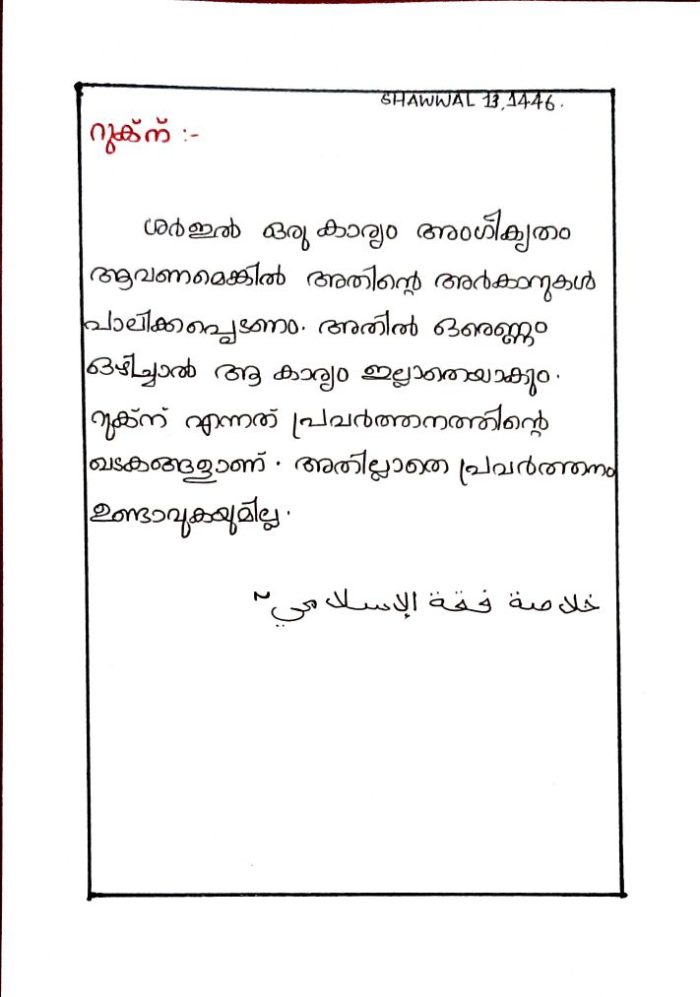 SHAWWAL 13, 1446.
റുക്ന് :-
ശർഇൽ ഒരു കാര്യം അംഗീകൃതം
ആവണമെങ്കിൽ അതിന്റെ അർകാനുകൾ
പാലിക്കപ്പെടണം. അതിൽ ഒരെണ്ണം
ഒഴിച്ചാൽ ആ കാര്യം ഇല്ലാതെയാകും.
റുക്ന് എന്നത് പ്രവർത്തനത്തിന്റെ
ഘടകങ്ങളാണ്. അതില്ലാതെ പ്രവർത്തനം
ഉണ്ടാവുകയുമില്ല.
خلاصة فقة الإسلامي ~